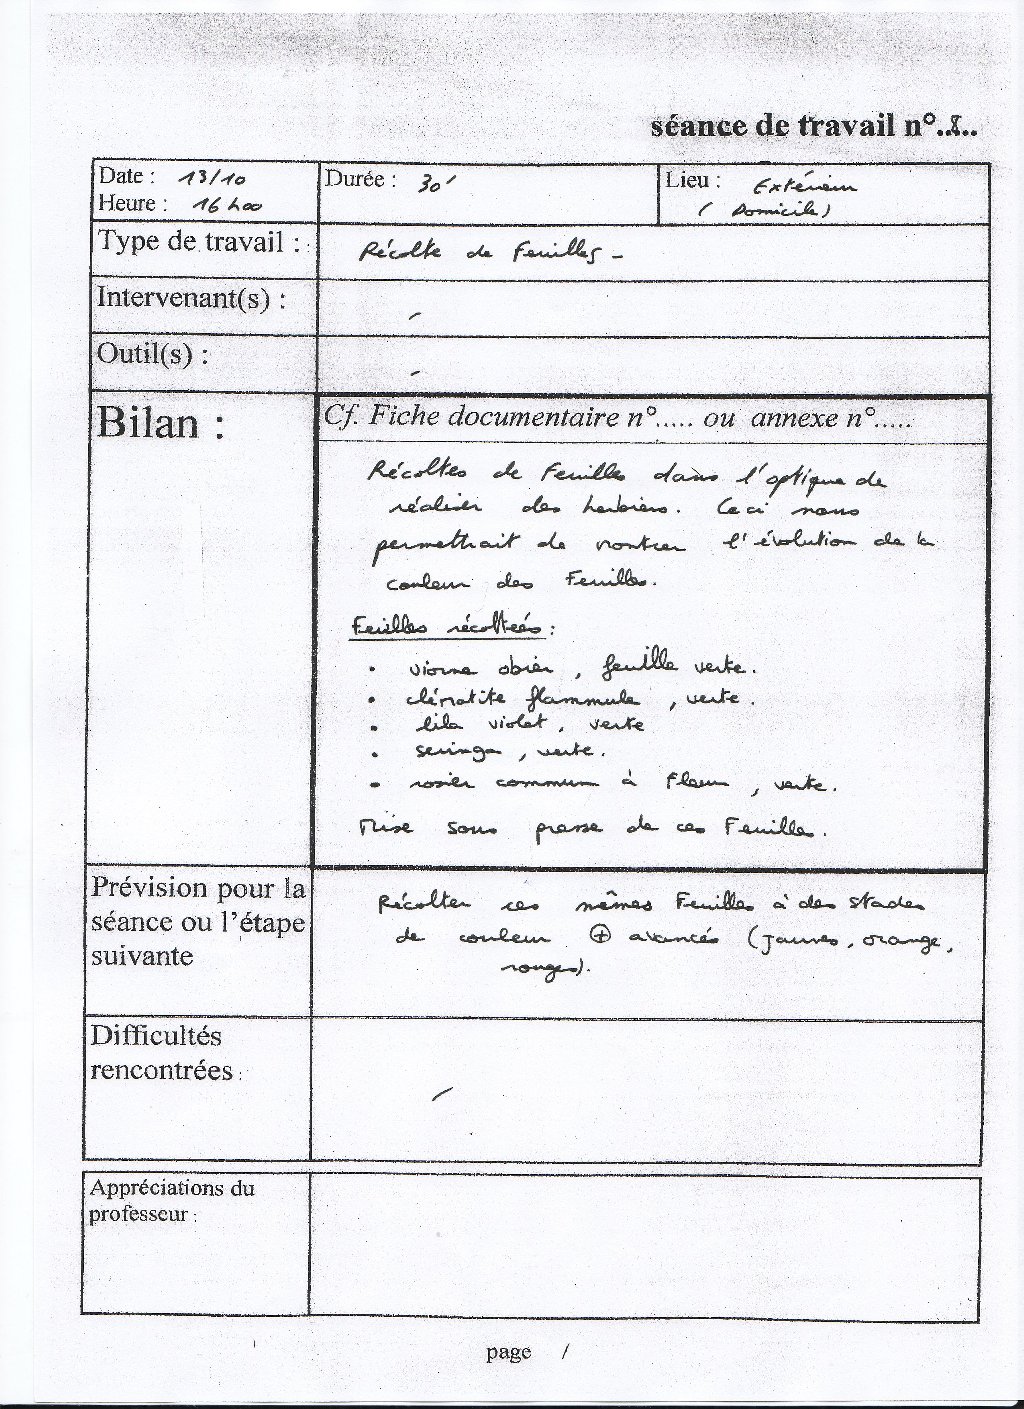 séance de travail n°..8..
Date : 13/10
Heure : 16 h00
Durée : 30'
Lieu : Extérieur
( Domicile)
Type de travail : Récolte de Feuilles -
Intervenant(s) : -
Outil(s) : -
Bilan :
Cf. Fiche documentaire n°..... ou annexe n°.....
Récoltes de Feuilles dans l'optique de
réaliser des herbiers. Ceci nous
permettrait de montrer l'évolution de la
couleur des Feuilles.
Feuilles récoltées :
• viorne obier , feuille verte.
• clématite flammule , verte.
• lila violet , verte
• seringa , verte.
• rosier commun à Fleur , verte.
Mise sous presse de ces Feuilles.
Prévision pour la
séance ou l'étape
suivante
Récolter ces mêmes Feuilles à des stades
de couleur ⊕ avancés (jaunes, orange,
rouges).
Difficultés
rencontrées :
-
Appréciations du
professeur :
page /